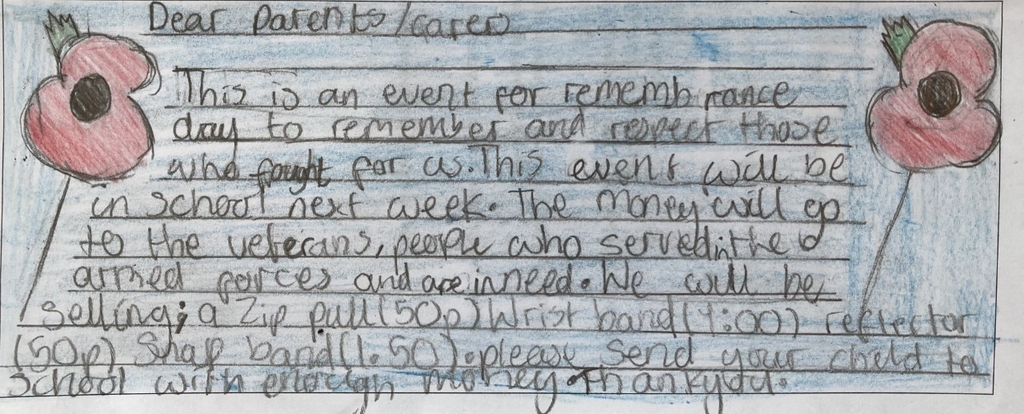 Dear parents/carers
This is an event for remembrance
day to remember and respect those
who fought for us. This event will be
in school next week. The money will go
to the veterans, people who served in the
armed forces and are in need. We will be
selling; a Zip pull (50p) Wrist band (1:00) reflector
(50p) Snap band (1.50). please send your child to
school with enough money. thankyou.